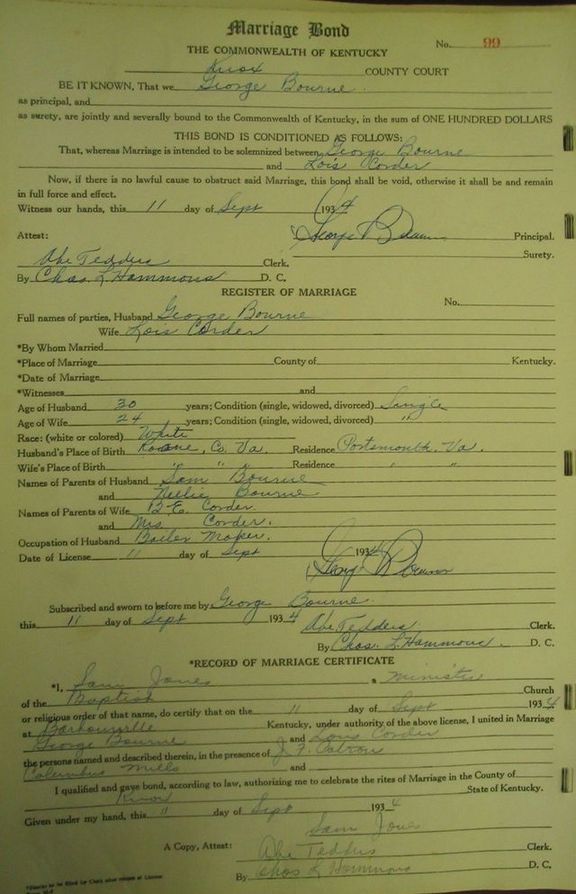 Marriage Bond
No. 99
THE COMMONWEALTH OF KENTUCKY
Knox COUNTY COURT
BE IT KNOWN, That we George Bourne
as principal, and
as surety, are jointly and severally bound to the Commonwealth of Kentucky, in the sum of ONE HUNDRED DOLLARS
THIS BOND IS CONDITIONED AS FOLLOWS:
That, whereas Marriage is intended to be solemnized between George Bourne
and Lois Corder
Now, if there is no lawful cause to obstruct said Marriage, this bond shall be void, otherwise it shall be and remain
in full force and effect.
Witness our hands, this 11 day of Sept 1934
George Bourne Principal.
Attest: Surety.
Abe Tedders Clerk.
By Chas L. Hammons D. C.
REGISTER OF MARRIAGE
No.
Full names of parties, Husband George Bourne
Wife Lois Corder
*By Whom Married
*Place of Marriage County of Kentucky.
*Date of Marriage
*Witnesses and
Age of Husband 30 years; Condition (single, widowed, divorced) Single
Age of Wife 24 years; Condition (single, widowed, divorced) "
Race: (white or colored) White
Husband's Place of Birth Co. Va. Residence Portsmouth, Va.
Wife's Place of Birth " " " Residence " "
Names of Parents of Husband Sam Bourne
and Nellie Bourne
Names of Parents of Wife B. E. Corder
and Mrs. Corder.
Occupation of Husband Boiler Maker.
Date of License 11 day of Sept 1934
George Bourne
Subscribed and sworn to before me by George Bourne.
this 11 day of Sept 1934
Abe Tedders Clerk.
By Chas. L. Hammons. D. C.
*RECORD OF MARRIAGE CERTIFICATE
*I, Sam Jones a minister
of the Baptist Church
or religious order of that name, do certify that on the 11 day of Sept 1934
at Barbourville Kentucky, under authority of the above license, I united in Marriage
George Bourne and Lois Corder
the persons named and described therein, in the presence of J. F. Catron
Columbus Mills and
I qualified and gave bond, according to law, authorizing me to celebrate the rites of Marriage in the County of
Knox State of Kentucky.
Given under my hand, this 11 day of Sept 1934
Sam Jones
A Copy, Attest: Abe Tedders Clerk.
By Chas L Hammons D. C.